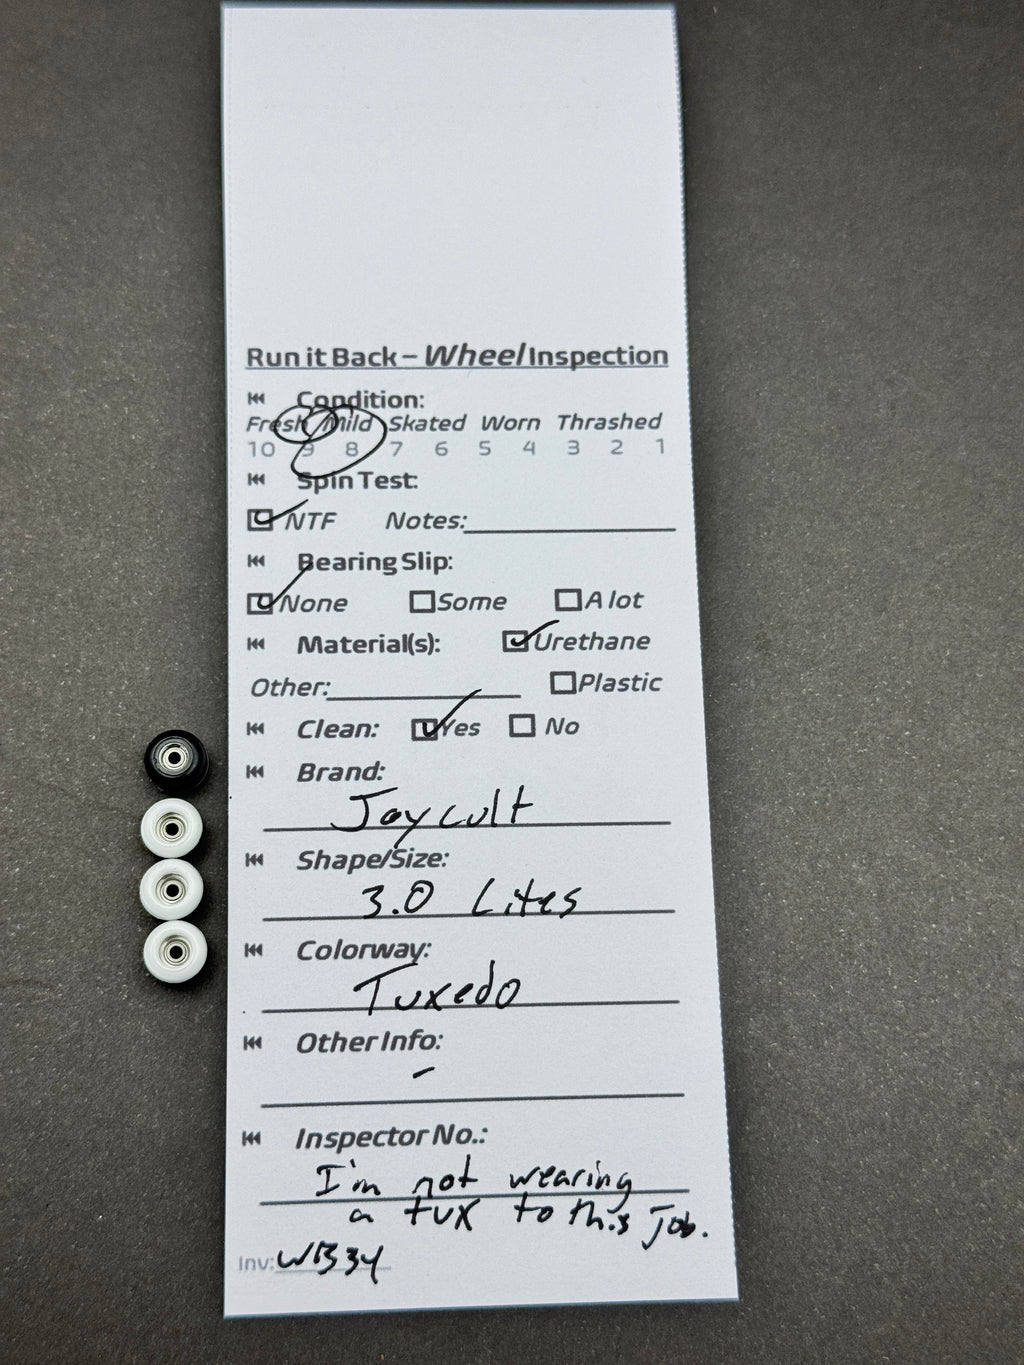 Run it Back – Wheel Inspection
Condition:
Fresh Mild Skated Worn Thrashed
10 9 8 7 6 5 4 3 2 1
Spin Test:
NTF Notes:
Bearing Slip:
None Some A lot
Material(s): Urethane
Other: Plastic
Clean: Yes No
Brand:
Joycult
Shape/Size:
3.0 Lites
Colorway:
Tuxedo
Other Info:
-
Inspector No.:
I'm not wearing
a tux to this job.
Inv: